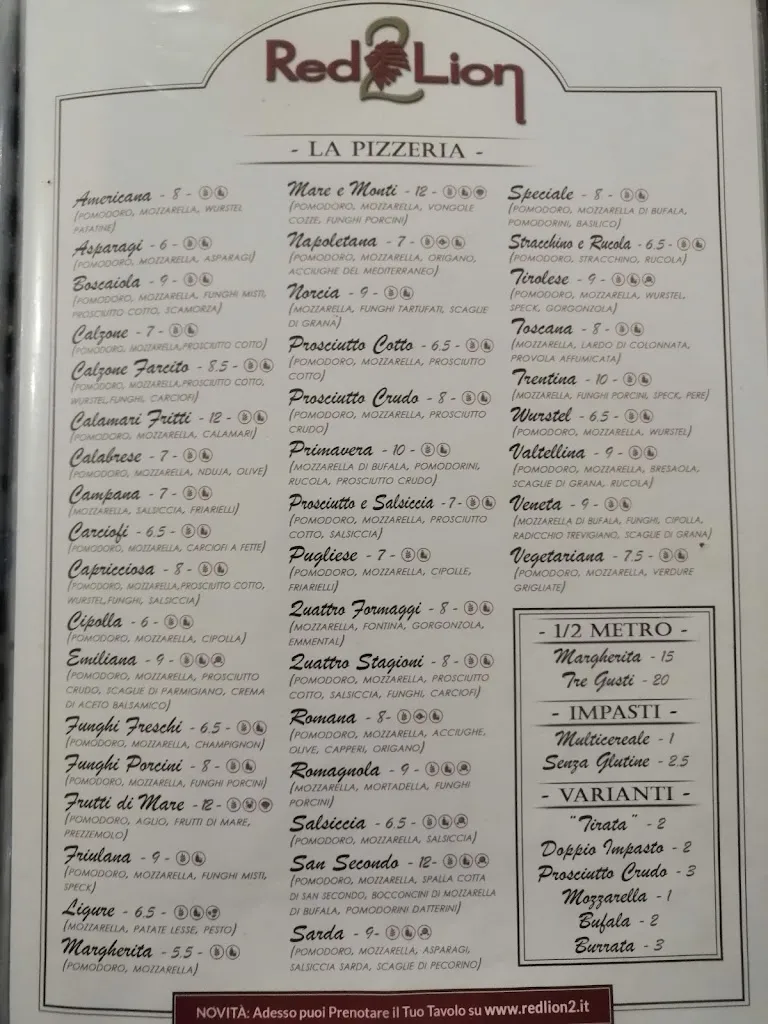 Red 2 Lion
- LA PIZZERIA -
Americana - 8 -
(POMODORO, MOZZARELLA, WURSTEL
PATATINE)
Asparagi - 6 -
(POMODORO, MOZZARELLA, ASPARAGI)
Boscaiola - 9 -
(POMODORO, MOZZARELLA, FUNGHI MISTI,
PROSCIUTTO COTTO, SCAMORZA)
Calzone - 7 -
(POMODORO, MOZZARELLA,PROSCIUTTO COTTO)
Calzone Farcito - 8.5 -
(POMODORO, MOZZARELLA,PROSCIUTTO COTTO,
WURSTEL,FUNGHI, CARCIOFI)
Calamari Fritti - 12 -
(POMODORO, MOZZARELLA, CALAMARI)
Calabrese - 7 -
(POMODORO, MOZZARELLA, NDUJA, OLIVE)
Campana - 7 -
(MOZZARELLA, SALSICCIA, FRIARIELLI)
Carciofi - 6.5 -
(POMODORO, MOZZARELLA, CARCIOFI A FETTE)
Capricciosa - 8 -
(POMODORO, MOZZARELLA,PROSCIUTTO COTTO,
WURSTEL,FUNGHI, SALSICCIA)
Cipolla - 6 -
(POMODORO, MOZZARELLA, CIPOLLA)
Emiliana - 9 -
(POMODORO, MOZZARELLA, PROSCIUTTO
CRUDO, SCAGLIE DI PARMIGIANO, CREMA
DI ACETO BALSAMICO)
Funghi Freschi - 6.5 -
(POMODORO, MOZZARELLA, CHAMPIGNON)
Funghi Porcini - 8 -
(POMODORO, MOZZARELLA, FUNGHI PORCINI)
Frutti di Mare - 12 -
(POMODORO, AGLIO, FRUTTI DI MARE,
PREZZEMOLO)
Friulana - 9 -
(POMODORO, MOZZARELLA, FUNGHI MISTI,
SPECK)
Ligure - 6.5 -
(MOZZARELLA, PATATE LESSE, PESTO)
Margherita - 5.5 -
(POMODORO, MOZZARELLA)
Mare e Monti - 12 -
(POMODORO, MOZZARELLA, VONGOLE
COZZE, FUNGHI PORCINI)
Napoletana - 7 -
(POMODORO, MOZZARELLA, ORIGANO,
ACCIUGHE DEL MEDITERRANEO)
Norcia - 9 -
(MOZZARELLA, FUNGHI TARTUFATI, SCAGLIE
DI GRANA)
Prosciutto Cotto - 6.5 -
(POMODORO, MOZZARELLA, PROSCIUTTO
COTTO)
Prosciutto Crudo - 8 -
(POMODORO, MOZZARELLA, PROSCIUTTO
CRUDO)
Primavera - 10 -
(MOZZARELLA DI BUFALA, POMODORINI,
RUCOLA, PROSCIUTTO CRUDO)
Prosciutto e Salsiccia - 7 -
(POMODORO, MOZZARELLA, PROSCIUTTO
COTTO, SALSICCIA)
Pugliese - 7 -
(POMODORO, MOZZARELLA, CIPOLLE,
FRIARIELLI)
Quattro Formaggi - 8 -
(MOZZARELLA, FONTINA, GORGONZOLA,
EMMENTAL)
Quattro Stagioni - 8 -
(POMODORO, MOZZARELLA, PROSCIUTTO
COTTO, SALSICCIA, FUNGHI, CARCIOFI)
Romana - 8-
(POMODORO, MOZZARELLA, ACCIUGHE,
OLIVE, CAPPERI, ORIGANO)
Romagnola - 9 -
(MOZZARELLA, MORTADELLA, FUNGHI
PORCINI)
Salsiccia - 6.5 -
(POMODORO, MOZZARELLA, SALSICCIA)
San Secondo - 12-
(POMODORO, MOZZARELLA, SPALLA COTTA
DI SAN SECONDO, BOCCONCINI DI MOZZARELLA
DI BUFALA, POMODORINI DATTERINI)
Sarda - 9-
(POMODORO, MOZZARELLA, ASPARAGI,
SALSICCIA SARDA, SCAGLIE DI PECORINO)
Speciale - 8 -
(POMODORO, MOZZARELLA DI BUFALA,
POMODORINI, BASILICO)
Stracchino e Rucola - 6.5 -
(POMODORO, STRACCHINO, RUCOLA)
Tirolese - 9 -
(POMODORO, MOZZARELLA, WURSTEL,
SPECK, GORGONZOLA)
Toscana - 8 -
(MOZZARELLA, LARDO DI COLONNATA,
PROVOLA AFFUMICATA)
Trentina - 10 -
(MOZZARELLA, FUNGHI PORCINI, SPECK, PERE)
Wurstel - 6.5 -
(POMODORO, MOZZARELLA, WURSTEL)
Valtellina - 9 -
(POMODORO, MOZZARELLA, BRESAOLA,
SCAGLIE DI GRANA, RUCOLA)
Veneta - 9 -
(MOZZARELLA DI BUFALA, FUNGHI, CIPOLLA,
RADICCHIO TREVIGIANO, SCAGLIE DI GRANA)
Vegetariana - 7.5 -
(POMODORO, MOZZARELLA, VERDURE
GRIGLIATE)
- 1/2 METRO -
Margherita - 15
Tre Gusti - 20
- IMPASTI -
Multicereale - 1
Senza Glutine - 2.5
- VARIANTI -
"Tirata" - 2
Doppio Impasto - 2
Prosciutto Crudo - 3
Mozzarella - 1
Bufala - 2
Burrata - 3
NOVITÀ: Adesso puoi Prenotare il Tuo Tavolo su www.redlion2.it